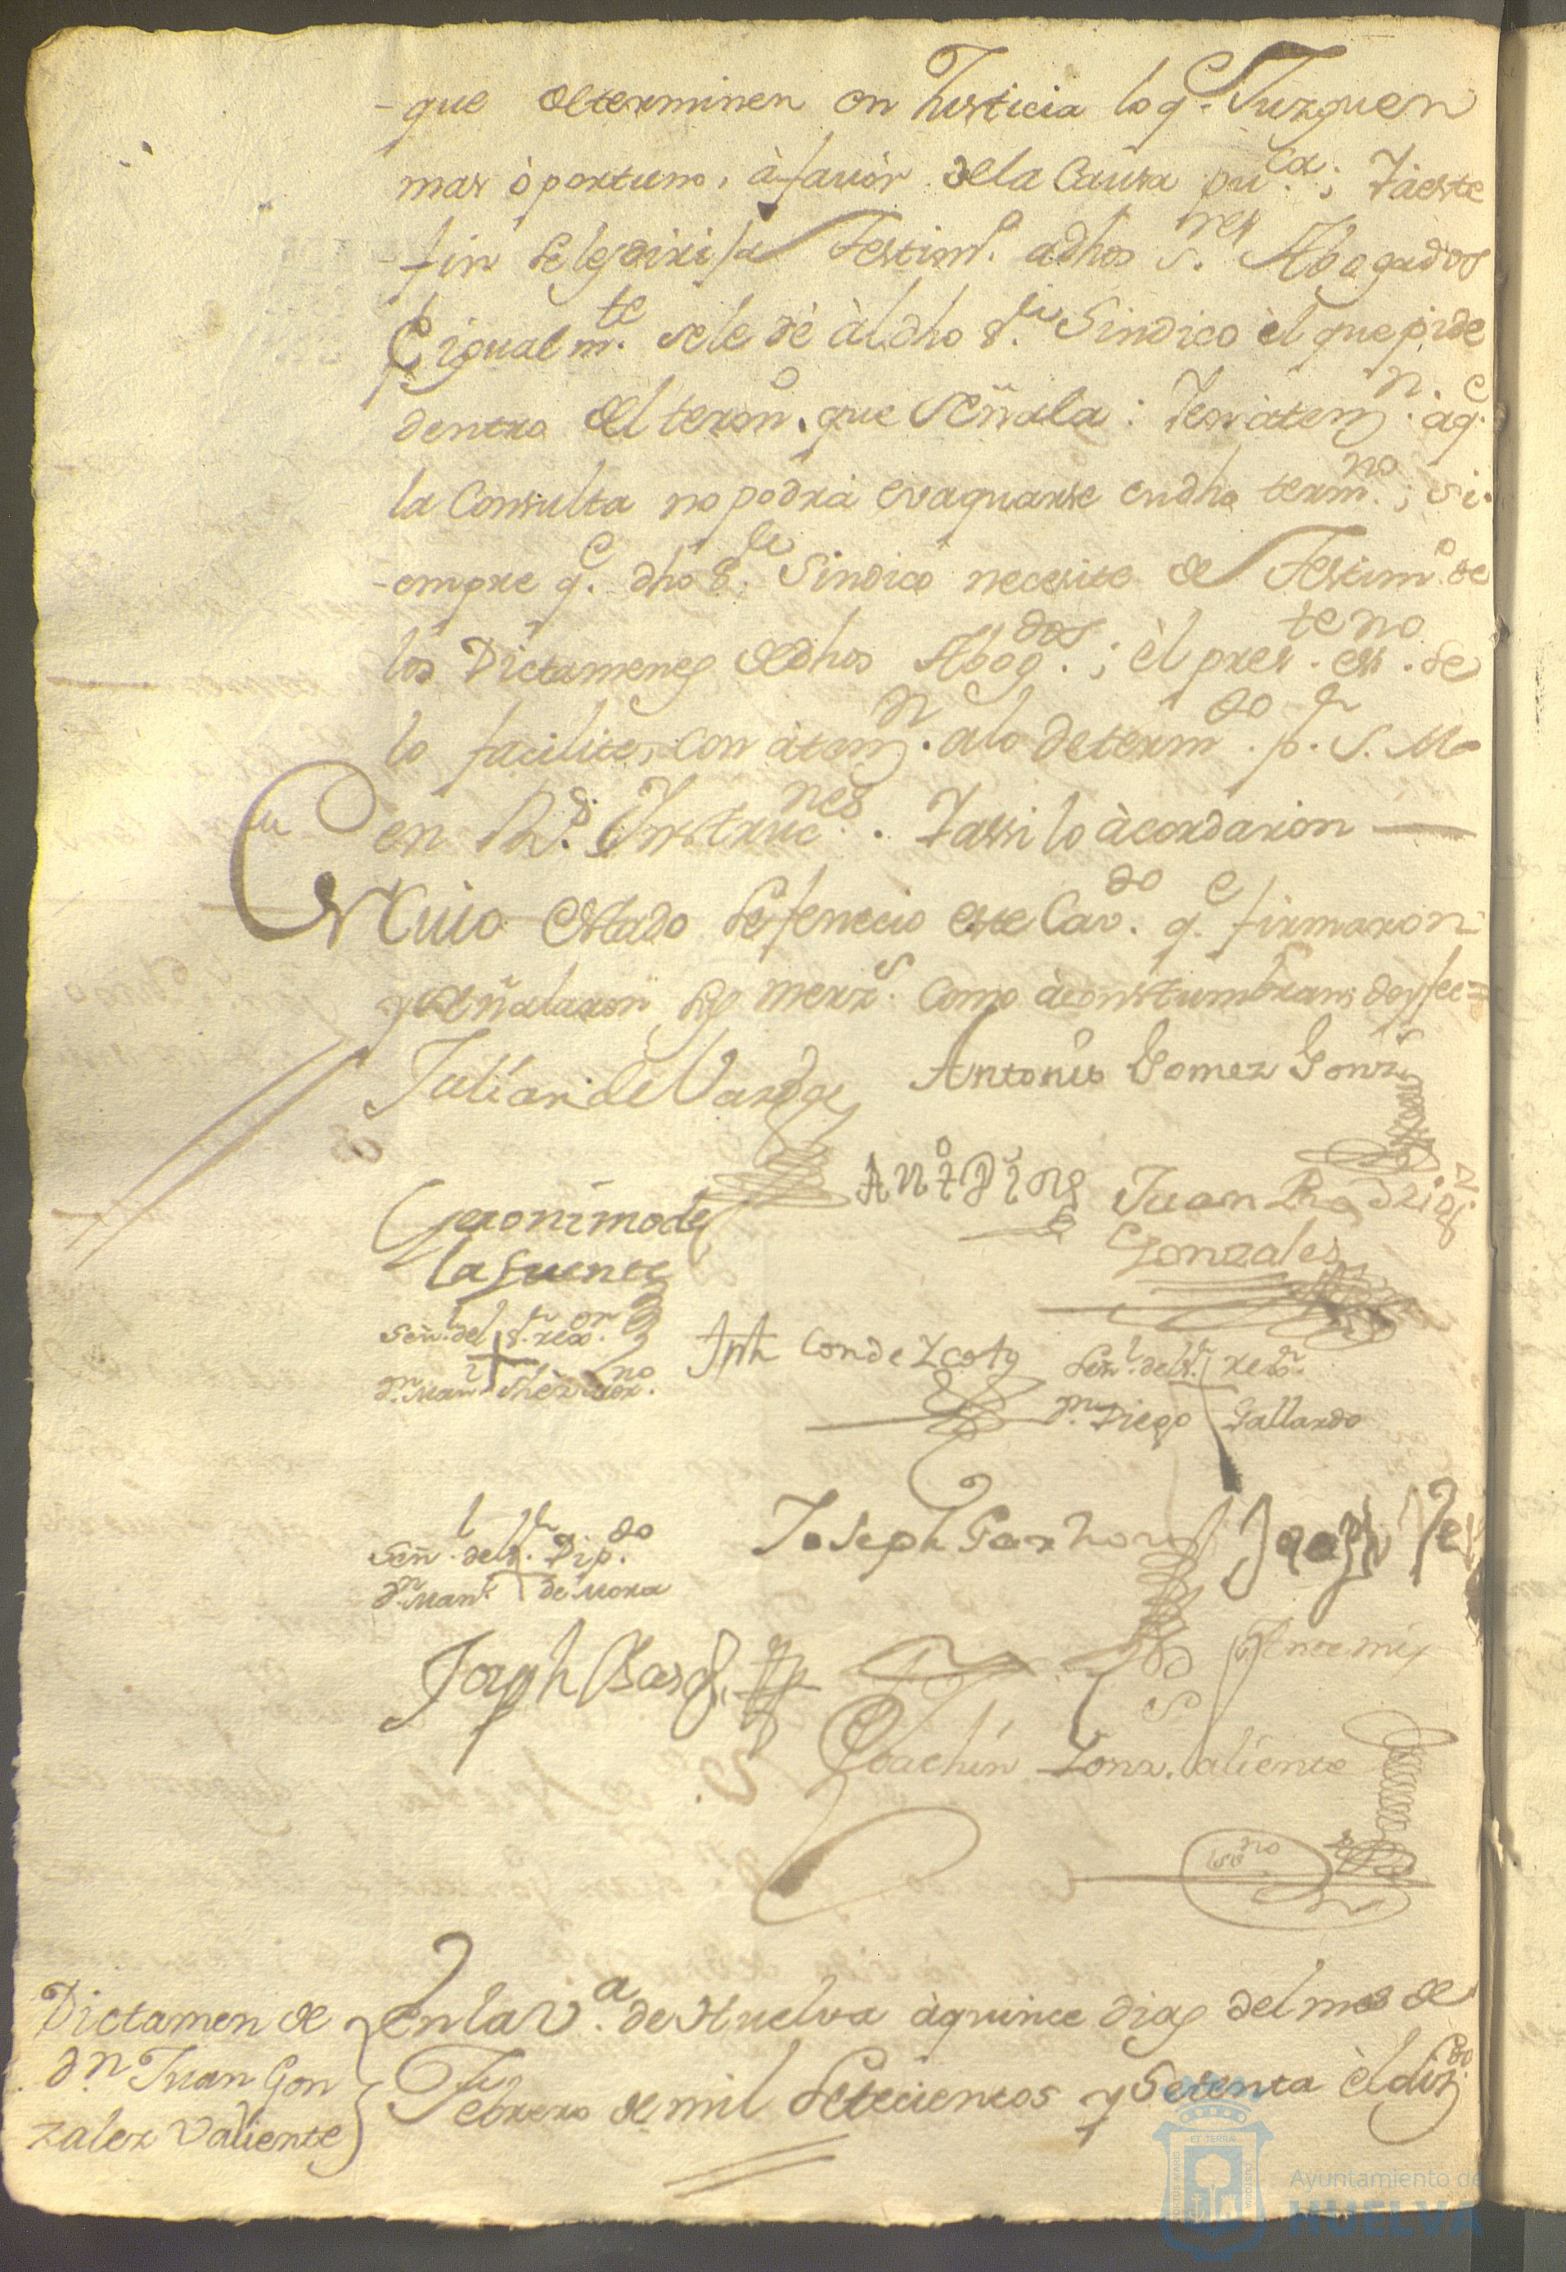 que determinen en Justicia lo q.e Juzguen
mas òportuno, à favòr dela Causa pu.ca; Y àeste
fin se les dirija Testim.o adhos s.res Abogados
è igualm.te se le dè àl dho s.r Sindico èl que pide
dentro del term.o que señala: Y en àten.n àq.e
la Consulta no podrà evaquarse en dho term.no; si-
-empre q.e dho s.r Sindico necesite de Testim.o de
los Dictamenes de dhos Abog.dos; èl pres.te ess.no se
lo facilite, con àten.n a lo determ.do p.r S. M.
en R.s Instruc.nes. Y assi lo àcordaron —
En Cuio estado se fenecio este Cav.do q.e firmaron
y señalaron sus merz.s como àcostumbran doy fee =
Julian de
Antonio Gomez Gonz.
Geronimo de
la Fuente
Juan Rodrig.z
Gonzales
Señ.l del s.r rex.or
d.n Man.l
Jph Conde
Señ.l del s.r rex.or
d.n Diego Gallardo
Señ.l del s.r Dip.do
d.n Man.l de Mora
Joseph
Joseph
Ante mi
Joachin Gonz. Valiente
ess.no
Dictamen de
d.n Juan Gon
zalez Valiente
En la V.a de Huelva à quince dias del mes de
Febrero de mil setecientos y setenta èl
ET TERRA
Ayuntamiento de
HUELVA